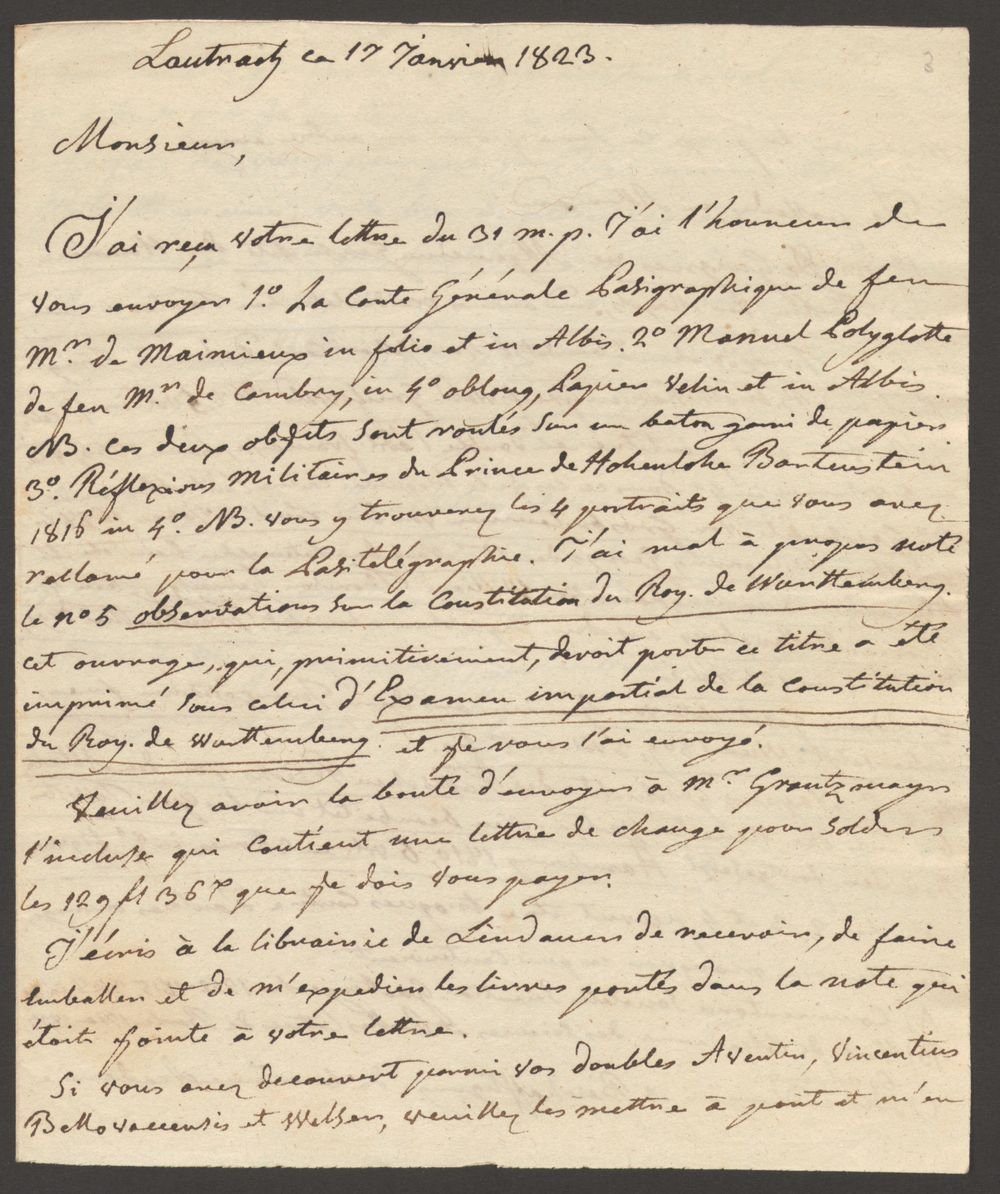 Lautrach ce 17 Janvier 1823.
3
Monsieur,
J'ai reçu votre lettre du 31 m. p. J'ai l'honneur de
vous envoyer 1.º La Carte Générale Pasigraphique de feu
M.r de Maimieux in folio et in Albis. 2º Manuel Polyglotte
de feu M.r de Cambry, in 4º oblong, Papier Velin et in Albis.
NB. ces deux objets sont roulés sur un baton garni de papier
3º. Réflexions Militaires du Prince de Hohenlohe Bartenstein
1816 in 4º. NB. vous y trouverez les 4 portraits que vous avez
reclamé pour la Pasitélégraphie. J'ai mal à propos noté
le nº 5 observations sur la Constitution du Roy. de Wurttemberg.
cet ouvrage, qui, primitivement, devoit porter ce titre a été
imprimé sous celui d'Examen impartial de la Constitution
du Roy. de Wurttemberg. et je vous l'ai envoyé.
Veuillez avoir la bonté d'envoyer à M.r Grantzmayr
l'incluse qui contient une lettre de change pour solder
les 129 fl 36 x que je dois vous payer.
J'écris à la librairie de Lindauer de recevoir, de faire
emballer et de m'expedier les livres portés dans la note qui
étoit jointe à votre lettre.
Si vous avez decouvert parmi vos doubles Aventin, Vincentius
Bellovacensis et Welser, veuillez les mettre à part et m'en